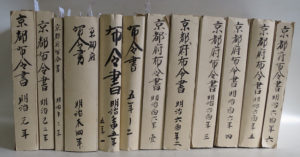 京都府布令書 明治元年
京都府布令書 明治二年
京都府布令書 明治三年
京都府布令書 明治四年
布令書 明治五年 一
布令書 五年ノ二
京都府布令書 明治六年 壱
京都府布令書 明治六年 二
京都府布令書 明治六年 三
京都府布令書 明治六年 四
京都府布令書 明治六年 五
京都府布令書 明治六年 六